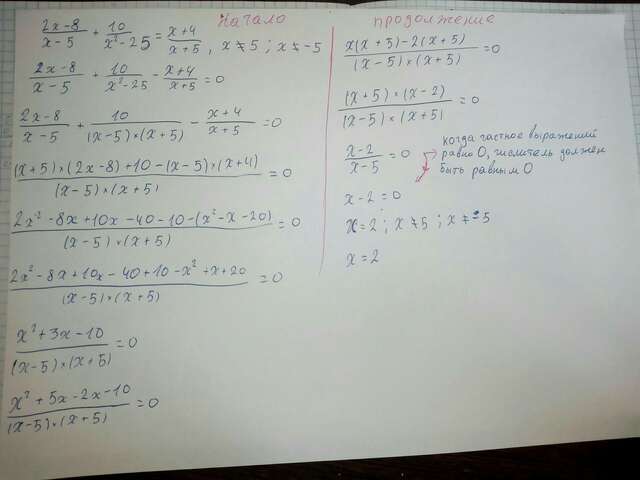 Начало
(2x-8)/(x-5) + 10/(x²-25) = (x+4)/(x+5), x≠5; x≠-5
(2x-8)/(x-5) + 10/(x²-25) - (x+4)/(x+5) = 0
(2x-8)/(x-5) + 10/((x-5)×(x+5)) - (x+4)/(x+5) = 0
((x+5)×(2x-8)+10-(x-5)×(x+4))/((x-5)×(x+5)) = 0
(2x²-8x+10x-40-10-(x²-x-20))/((x-5)×(x+5)) = 0
(2x²-8x+10x-40+10-x²+x+20)/((x-5)×(x+5)) = 0
(x²+3x-10)/((x-5)×(x+5)) = 0
(x²+5x-2x-10)/((x-5)×(x+5)) = 0
продолжение
(x(x+5)-2(x+5))/((x-5)×(x+5)) = 0
((x+5)×(x-2))/((x-5)×(x+5)) = 0
(x-2)/(x-5) = 0
когда частное выражений
равно 0, числитель должен
быть равным 0
x-2=0
x=2; x≠5; x≠-5
x=2